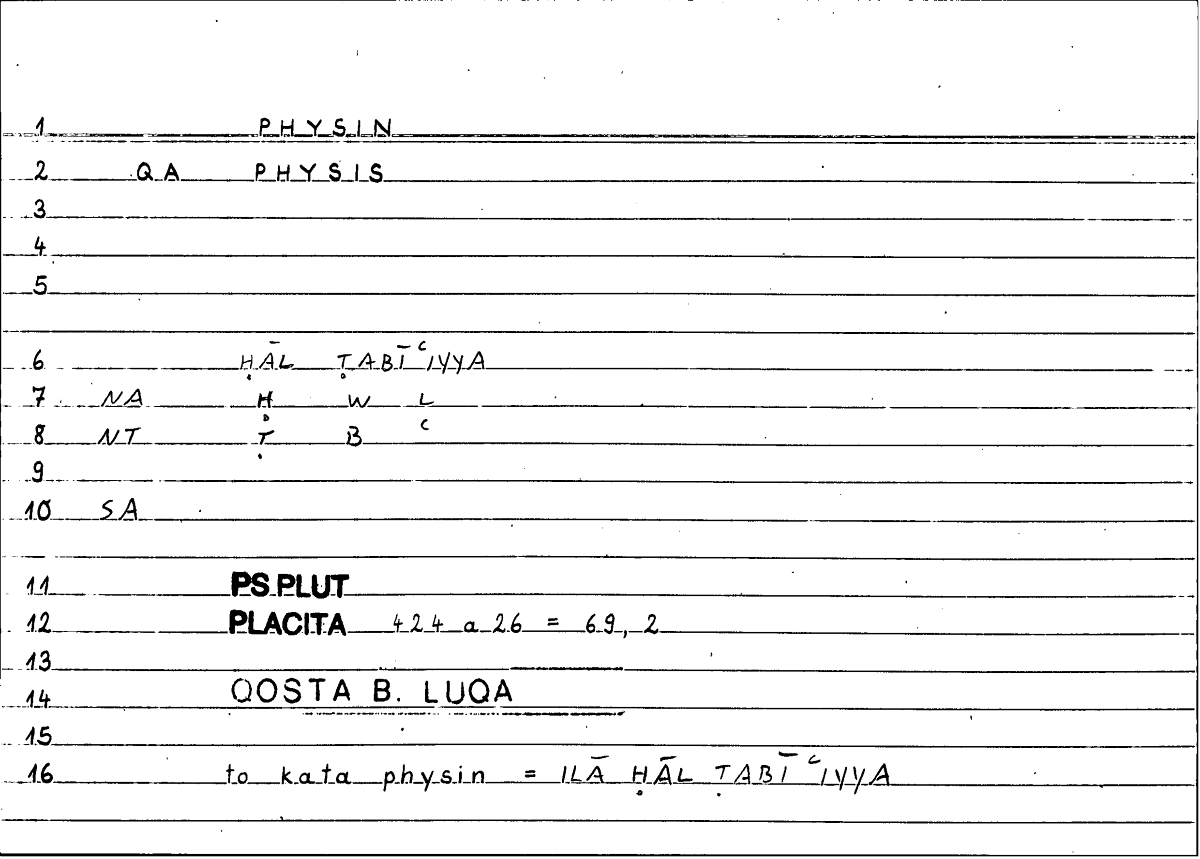 1 PHYSIN
2 QA PHYSIS
3
4
5
6 ḤĀL ṬABĪʿIYYA
7 NA Ḥ W L
8 NT Ṭ B ʿ
9
10 SA
11 PS.PLUT
12 PLACITA 424 a 26 = 69, 2
13
14 QOSTA B. LUQA
15
16 to kata physin = ILĀ ḤĀL ṬABĪʿIYYA